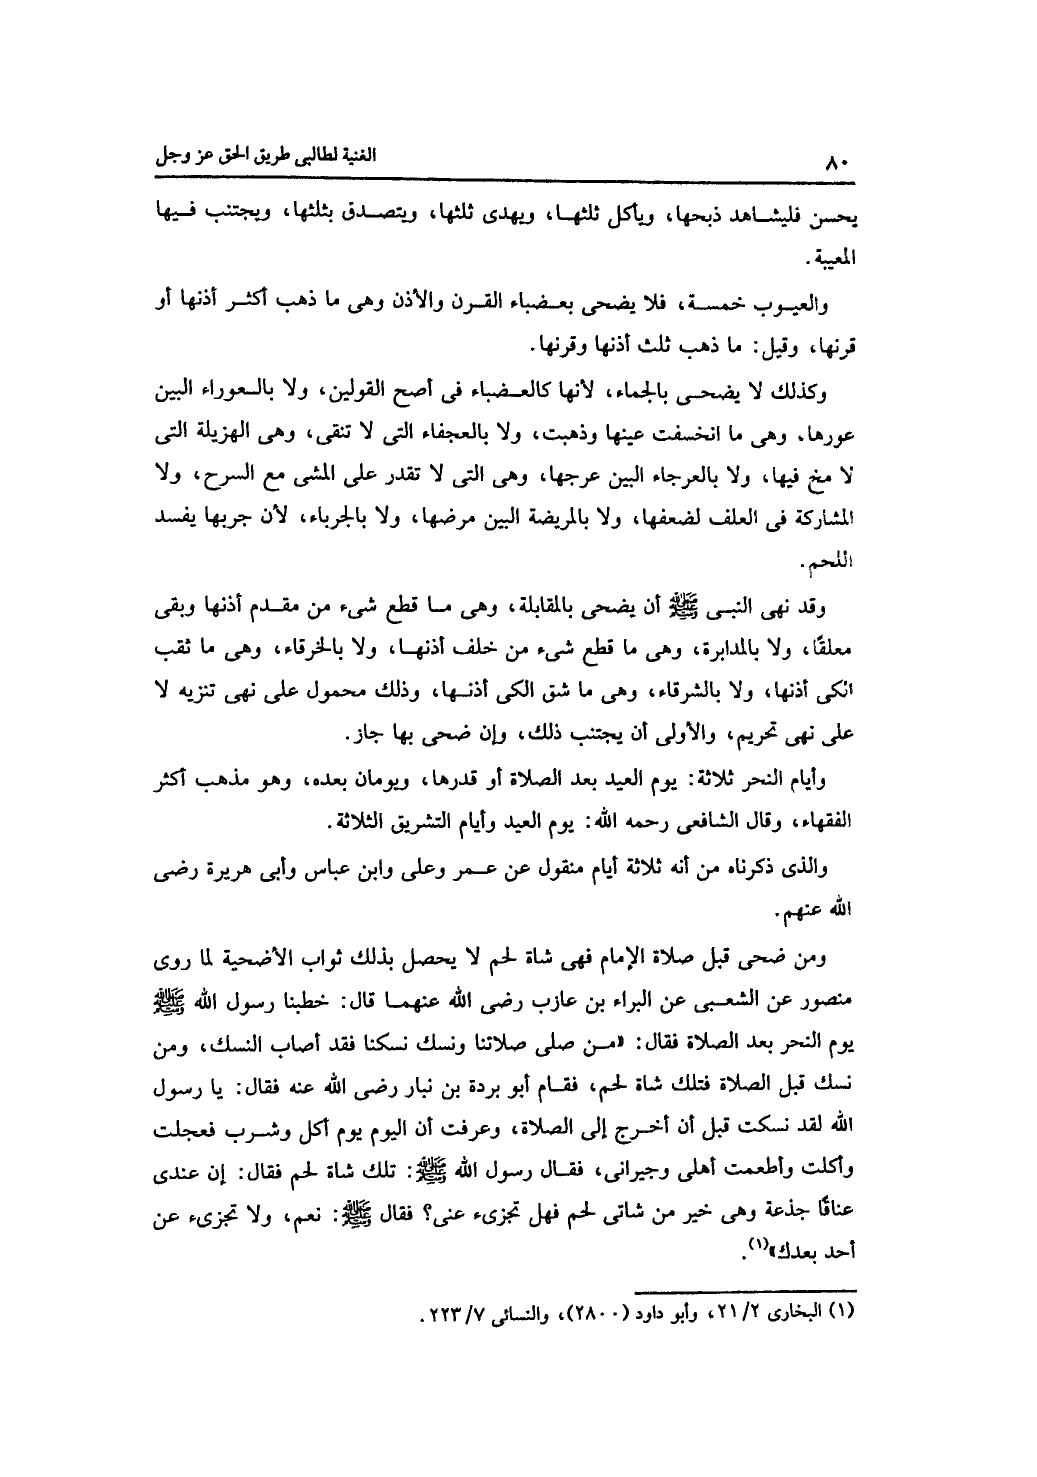 ٨٠
الغنية لطالبى طريق الحق عز وجل
يحسن فليشاهد ذبحها، ويأكل ثلثها، ويهدى ثلثها، ويتصدق بثلثها، ويجتنب فيها
المعيبة.
والعيوب خمسة، فلا يضحى بعضباء القرن والأذن وهى ما ذهب أكثر أذنها أو
قرنها، وقيل: ما ذهب ثلث أذنها وقرنها.
وكذلك لا يضحى بالجماء، لأنها كالعضباء فى أصح القولين، ولا بالعوراء البين
عورها. وهى ما انخسفت عينها وذهبت، ولا بالعجفاء التى لا تنقى، وهى الهزيلة التى
لا مخ فيها، ولا بالعرجاء البين عرجها، وهى التى لا تقدر على المشى مع السرح، ولا
المشاركة فى العلف لضعفها، ولا بالمريضة البين مرضها، ولا بالجرباء، لأن جربها يفسد
اللحم.
وقد نهى النبى ﷺ أن يضحى بالمقابلة، وهى ما قطع شىء من مقدم أذنها وبقى
معلقًا، ولا بالمدابرة، وهى ما قطع شىء من خلف أذنها، ولا بالخرقاء، وهى ما ثقب
الكى أذنها، ولا بالشرقاء، وهى ما شق الكى أذنها، وذلك محمول على نهى تنزيه لا
على نهى تحريم، والأولى أن يجتنب ذلك، وإن ضحى بها جاز.
وأيام النحر ثلاثة: يوم العيد بعد الصلاة أو قدرها، ويومان بعده، وهو مذهب أكثر
الفقهاء، وقال الشافعى رحمه الله: يوم العيد وأيام التشريق الثلاثة.
والذى ذكرناه من أنه ثلاثة أيام منقول عن عمر وعلى وابن عباس وأبى هريرة رضى
الله عنهم.
ومن ضحى قبل صلاة الإمام فهى شاة لحم لا يحصل بذلك ثواب الأضحية لما روى
منصور عن الشعبى عن البراء بن عازب رضى الله عنهما قال: خطبنا رسول الله ﷺ
يوم النحر بعد الصلاة فقال: «من صلى صلاتنا ونسك نسكنا فقد أصاب النسك، ومن
نسك قبل الصلاة فتلك شاة لحم، فقام أبو بردة بن نيار رضى الله عنه فقال: يا رسول
الله لقد نسكت قبل أن أخرج إلى الصلاة، وعرفت أن اليوم يوم أكل وشرب فعجلت
وأكلت وأطعمت أهلى وجيرانى، فقال رسول الله ﷺ: تلك شاة لحم فقال: إن عندى
عناقًا جذعة وهى خير من شاتى لحم فهل تجزىء عنى؟ فقال ﷺ: نعم، ولا تجزىء عن
أحد بعدك»(١).
(١) البخارى ٢١/٢، وأبو داود (٢٨٠٠)، والنسائى ٢٢٣/٧.